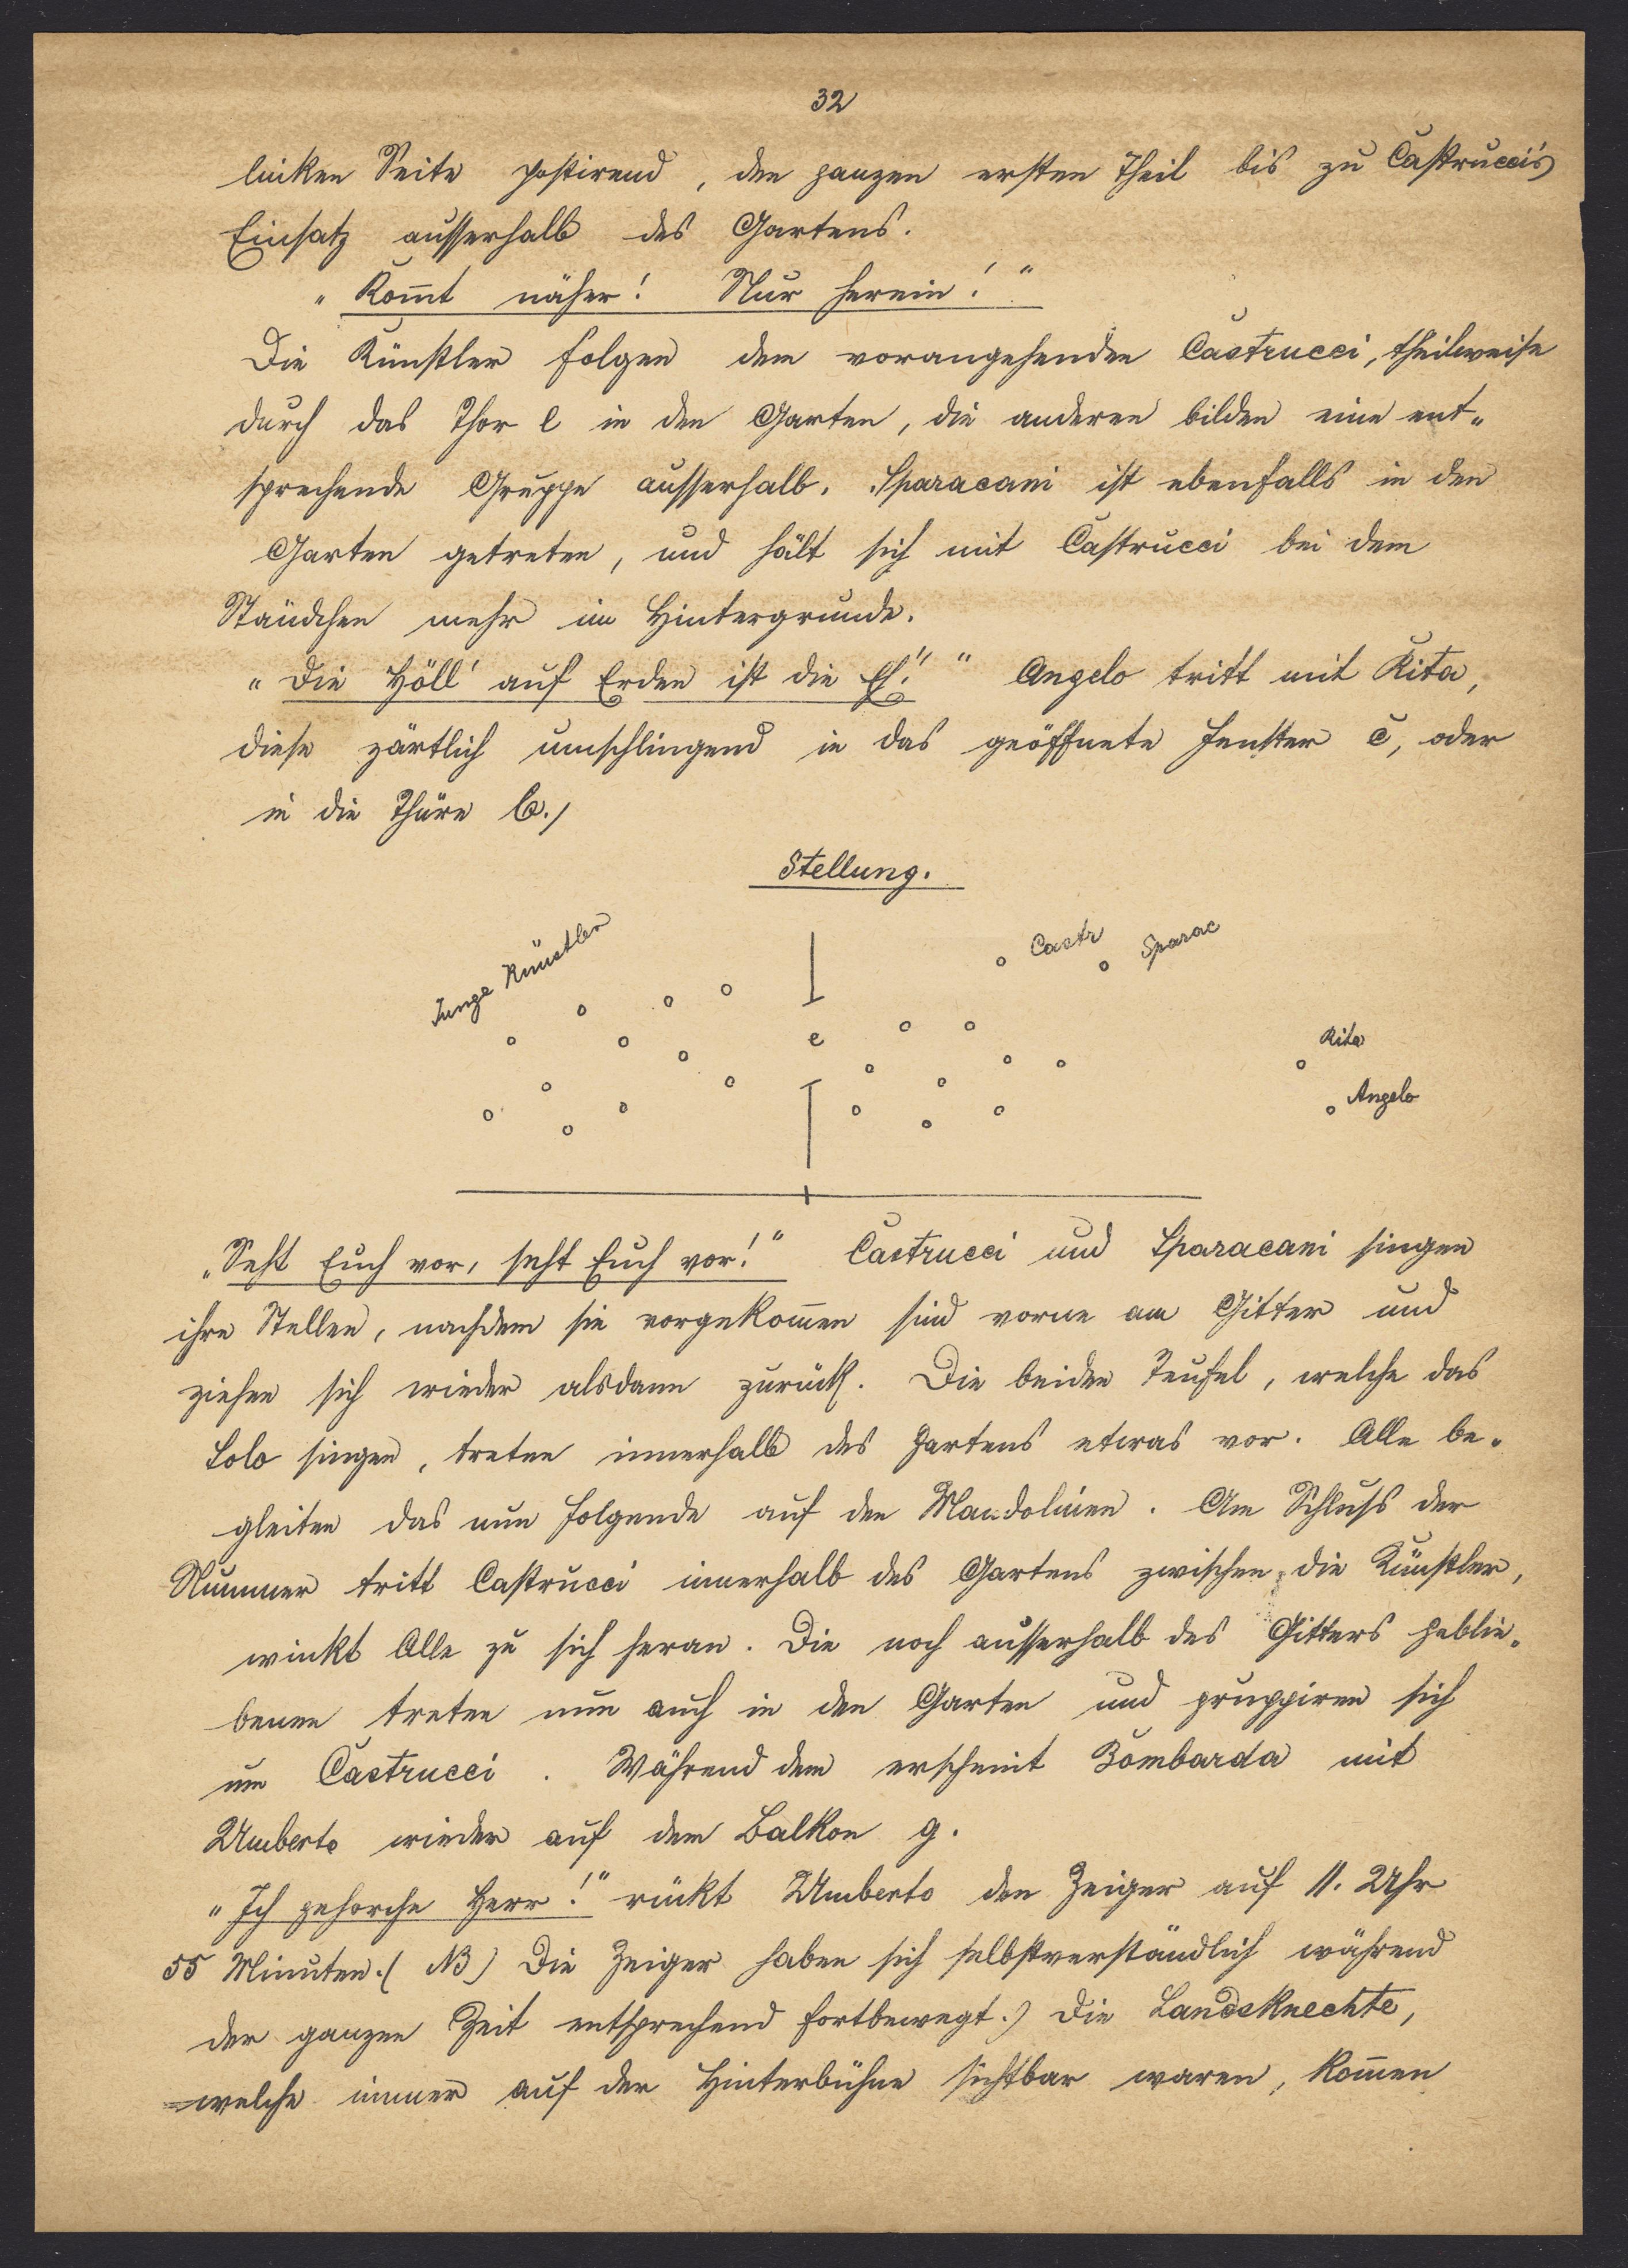 32
linken Seite postirend, den ganzen ersten Theil bis zu Castrucci's
Einsatz ausserhalb des Gartens.
„Kom̄t näher! Nur herein!“
Die Künstler folgen dem vorangehenden Castrucci, theilweise
durch das Thor e in den Garten, die anderen bilden eine ent„
sprechende Gruppe ausserhalb. Sparacani ist ebenfalls in den
Garten getreten, und hält sich mit Castrucci bei dem
Ständchen mehr im Hintergrunde.
„Die Höll' auf Erden ist die Eh'!“ Angelo tritt mit Rita,
diese zärtlich umschlingend in das geöffnete Fenster c, oder
in die Thüre b./
Stellung.
Junge Künstler
Castr
Sparac
e
Rita
Angelo
„Seht Euch vor, seht Euch vor!“ Castrucci und Sparacani singen
ihre Stellen, nachdem sie vorgekom̄en sind vorne am Gitter und
ziehen sich wieder alsdann zurück. Die beiden Teufel, welche das
Solo singen, treten innerhalb des Gartens etwas vor. Alle be„
gleiten das nun folgende auf den Mandolinen. Am Schluss der
Nummer tritt Castrucci innerhalb des Gartens zwischen die Künstler,
winkt Alle zu sich heran. Die noch ausserhalb des Gitters geblie„
benen treten nun auch in den Garten und gruppiren sich
um Castrucci. Während dem erscheint Bombarda mit
Umberto wieder auf dem Balkon g.
„Ich gehorche Herr!“ rückt Umberto den Zeiger auf 11. Uhr
55 Minuten.( NB) Die Zeiger haben sich selbstverständlich während
der ganzen Zeit entsprechend fortbewegt.) Die Landsknechte,
welche immer auf der Hinterbühne sichtbar waren, kom̄en